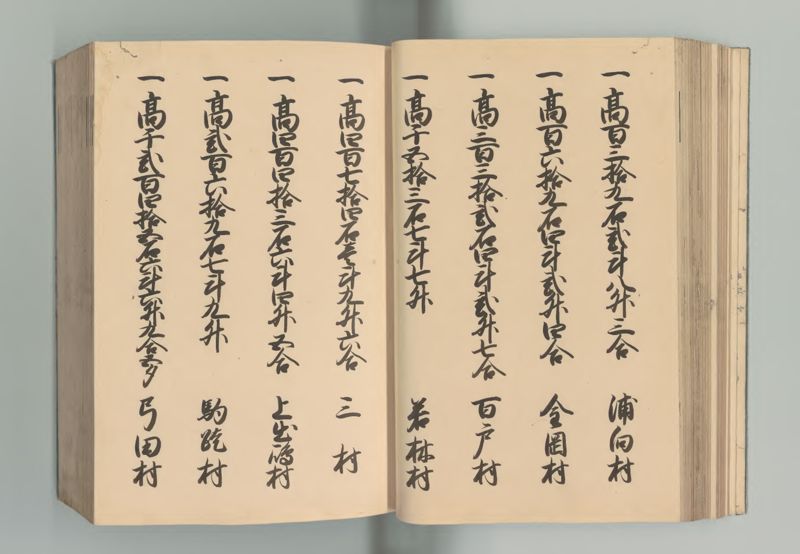 一高百三拾九石弐斗八升三合 浦向村
一高百六拾九石四斗弐升四合 金岡村
一高三百三拾弐石四斗弐升七合 百戸村
一高千五拾三石七斗七升 若林村
一高四百七拾四石壱斗九升六合 三村
一高四百四拾三石六斗四升五合 上出嶋村
一高弐百六拾九石七斗九升 駒跿村
一高千弐百四拾五石六斗六升九合 弓田村